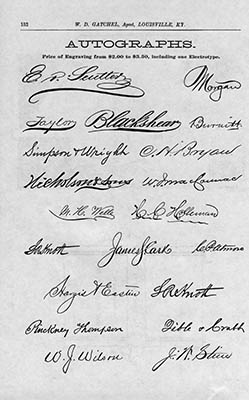 132 W. D. GATCHEL, Agent, LOUISVILLE, KY.
AUTOGRAPHS.
Price of Engraving from $2.00 to $3.50, including one Electrotype.
Morgan
Taylor Blackshear Burnett
Simpson & Wright C. H. Bryan
Nicholson & Sons
M. H. Wells C. C. Holleman
S. R. Knott James Clark C. Patmore
S. R. Knott
Pinckney Thompson Dible & Crabb
W. J. Wilson